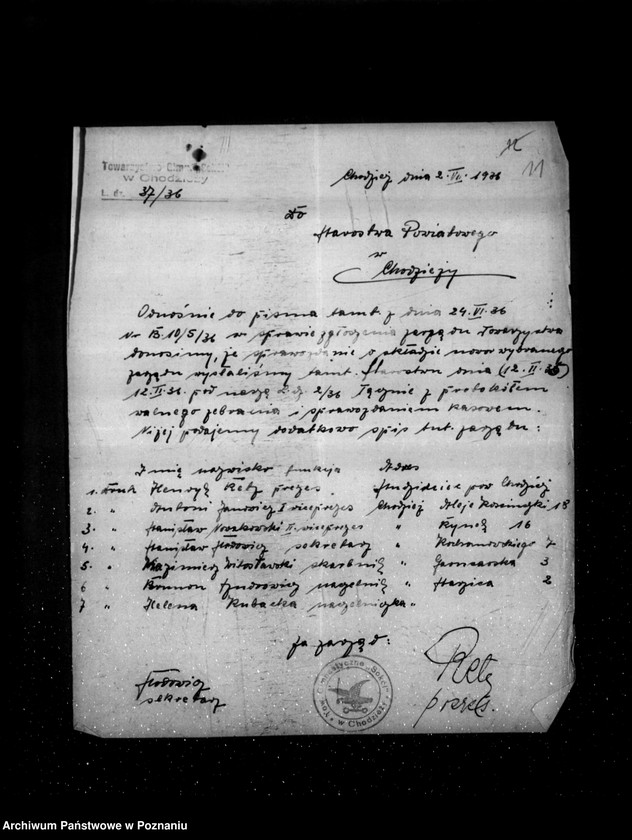 11
Towarzystwo Gimnastyczne
w Chodzieży
L. dz. 37/36
Chodzież dnia 2. VII. 1936
Do
Starostwa Powiatowego
w
Chodzieży
Odnośnie do pisma tamt. z dnia 24. VI. 36
Nr B. 10/5/36 w sprawie zgłoszenia zarządu Towarzystwa
donosimy, że sprawozdanie o składzie nowo wybranego
zarządu wysłaliśmy tamt. Starostwu dnia (12. II. 36)
12. II. 36. pod naszą L. dz. 2/36 łącznie z protokółem
walnego zebrania i sprawozdaniem kasowem.
Niżej podajemy dodatkowo spis tut. zarządu:
Imię nazwisko funkcja Adres
1. druh Henryk Retz prezes. Studzieniec pow Chodzież
2. " Antoni Janowicz I viceprezes Chodzież Aleje Kosciuszki 18
3. " Stanisław Nowakowski II. viceprezes " Rynek 16
4. " Stanisław sekretarz " Kochanowskiego 7
5. " Kazimierz Witosławski skarbnik " Garncarska 3
6 " Brunon naczelnik " 2
7 " Helena Kubacka naczelniczka "
Za zarząd:
sekretarz
Tow. Gimnastyczne "Sokół"
w Chodzieży
Retz
prezes.
Archiwum Państwowe w Poznaniu